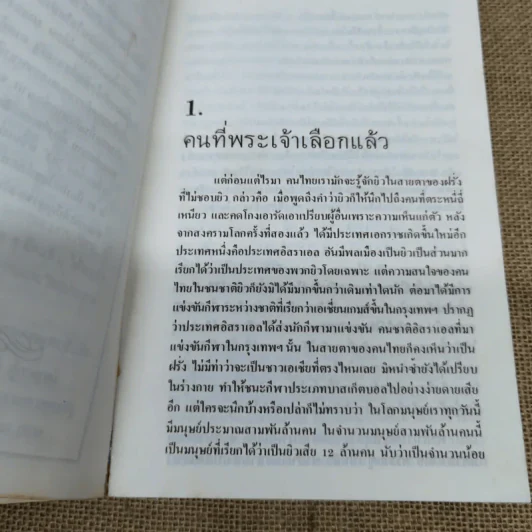 1.
คนที่พระเจ้าเลือกแล้ว
แต่ก่อนแต่ไรมา คนไทยเรามักจะรู้จักยิวในสายตาของฝรั่ง
ที่ไม่ชอบยิว กล่าวคือ เมื่อพูดถึงคำว่ายิวก็ให้นึกไปถึงคนที่ตระหนี่ถี่
เหนียว และคดโกงเอารัดเอาเปรียบผู้อื่นเพราะความเห็นแก่ตัว หลัง
จากสงครามโลกครั้งที่สองแล้ว ได้มีประเทศเอกราชเกิดขึ้นใหม่อีก
ประเทศหนึ่งคือประเทศอิสราเอล อันมีพลเมืองเป็นยิวเป็นส่วนมาก
เรียกได้ว่าเป็นประเทศของพวกยิวโดยเฉพาะ แต่ความสนใจของคน
ไทยในชนชาติยิวก็ยังมิได้มีมากขึ้นกว่าเดิมเท่าใดนัก ต่อมาได้มีการ
แข่งขันกีฬาระหว่างชาติที่เรียกว่าเอเชี่ยนเกมส์ขึ้นในกรุงเทพฯ ปรากฏ
ว่าประเทศอิสราเอลได้ส่งนักกีฬามาแข่งขัน คนชาติอิสราเอลที่มา
แข่งขันกีฬาในกรุงเทพฯ นั้น ในสายตาของคนไทยก็คงเห็นว่าเป็น
ฝรั่ง ไม่มีท่าว่าจะเป็นชาวเอเชียที่ตรงไหนเลย มิหนำซ้ำยังได้เปรียบ
ในร่างกาย ทำให้ชนะกีฬาประเภทบาสเก็ตบอลไปอย่างง่ายดายเสีย
อีก แต่ใครจะนึกบ้างหรือเปล่าก็ไม่ทราบว่า ในโลกมนุษย์เราทุกวันนี้
มีมนุษย์ประมาณสามพันล้านคน ในจำนวนมนุษย์สามพันล้านคนนี้
เป็นมนุษย์ที่เรียกได้ว่าเป็นยิวเสีย 12 ล้านคน นับว่าเป็นจำนวนน้อย